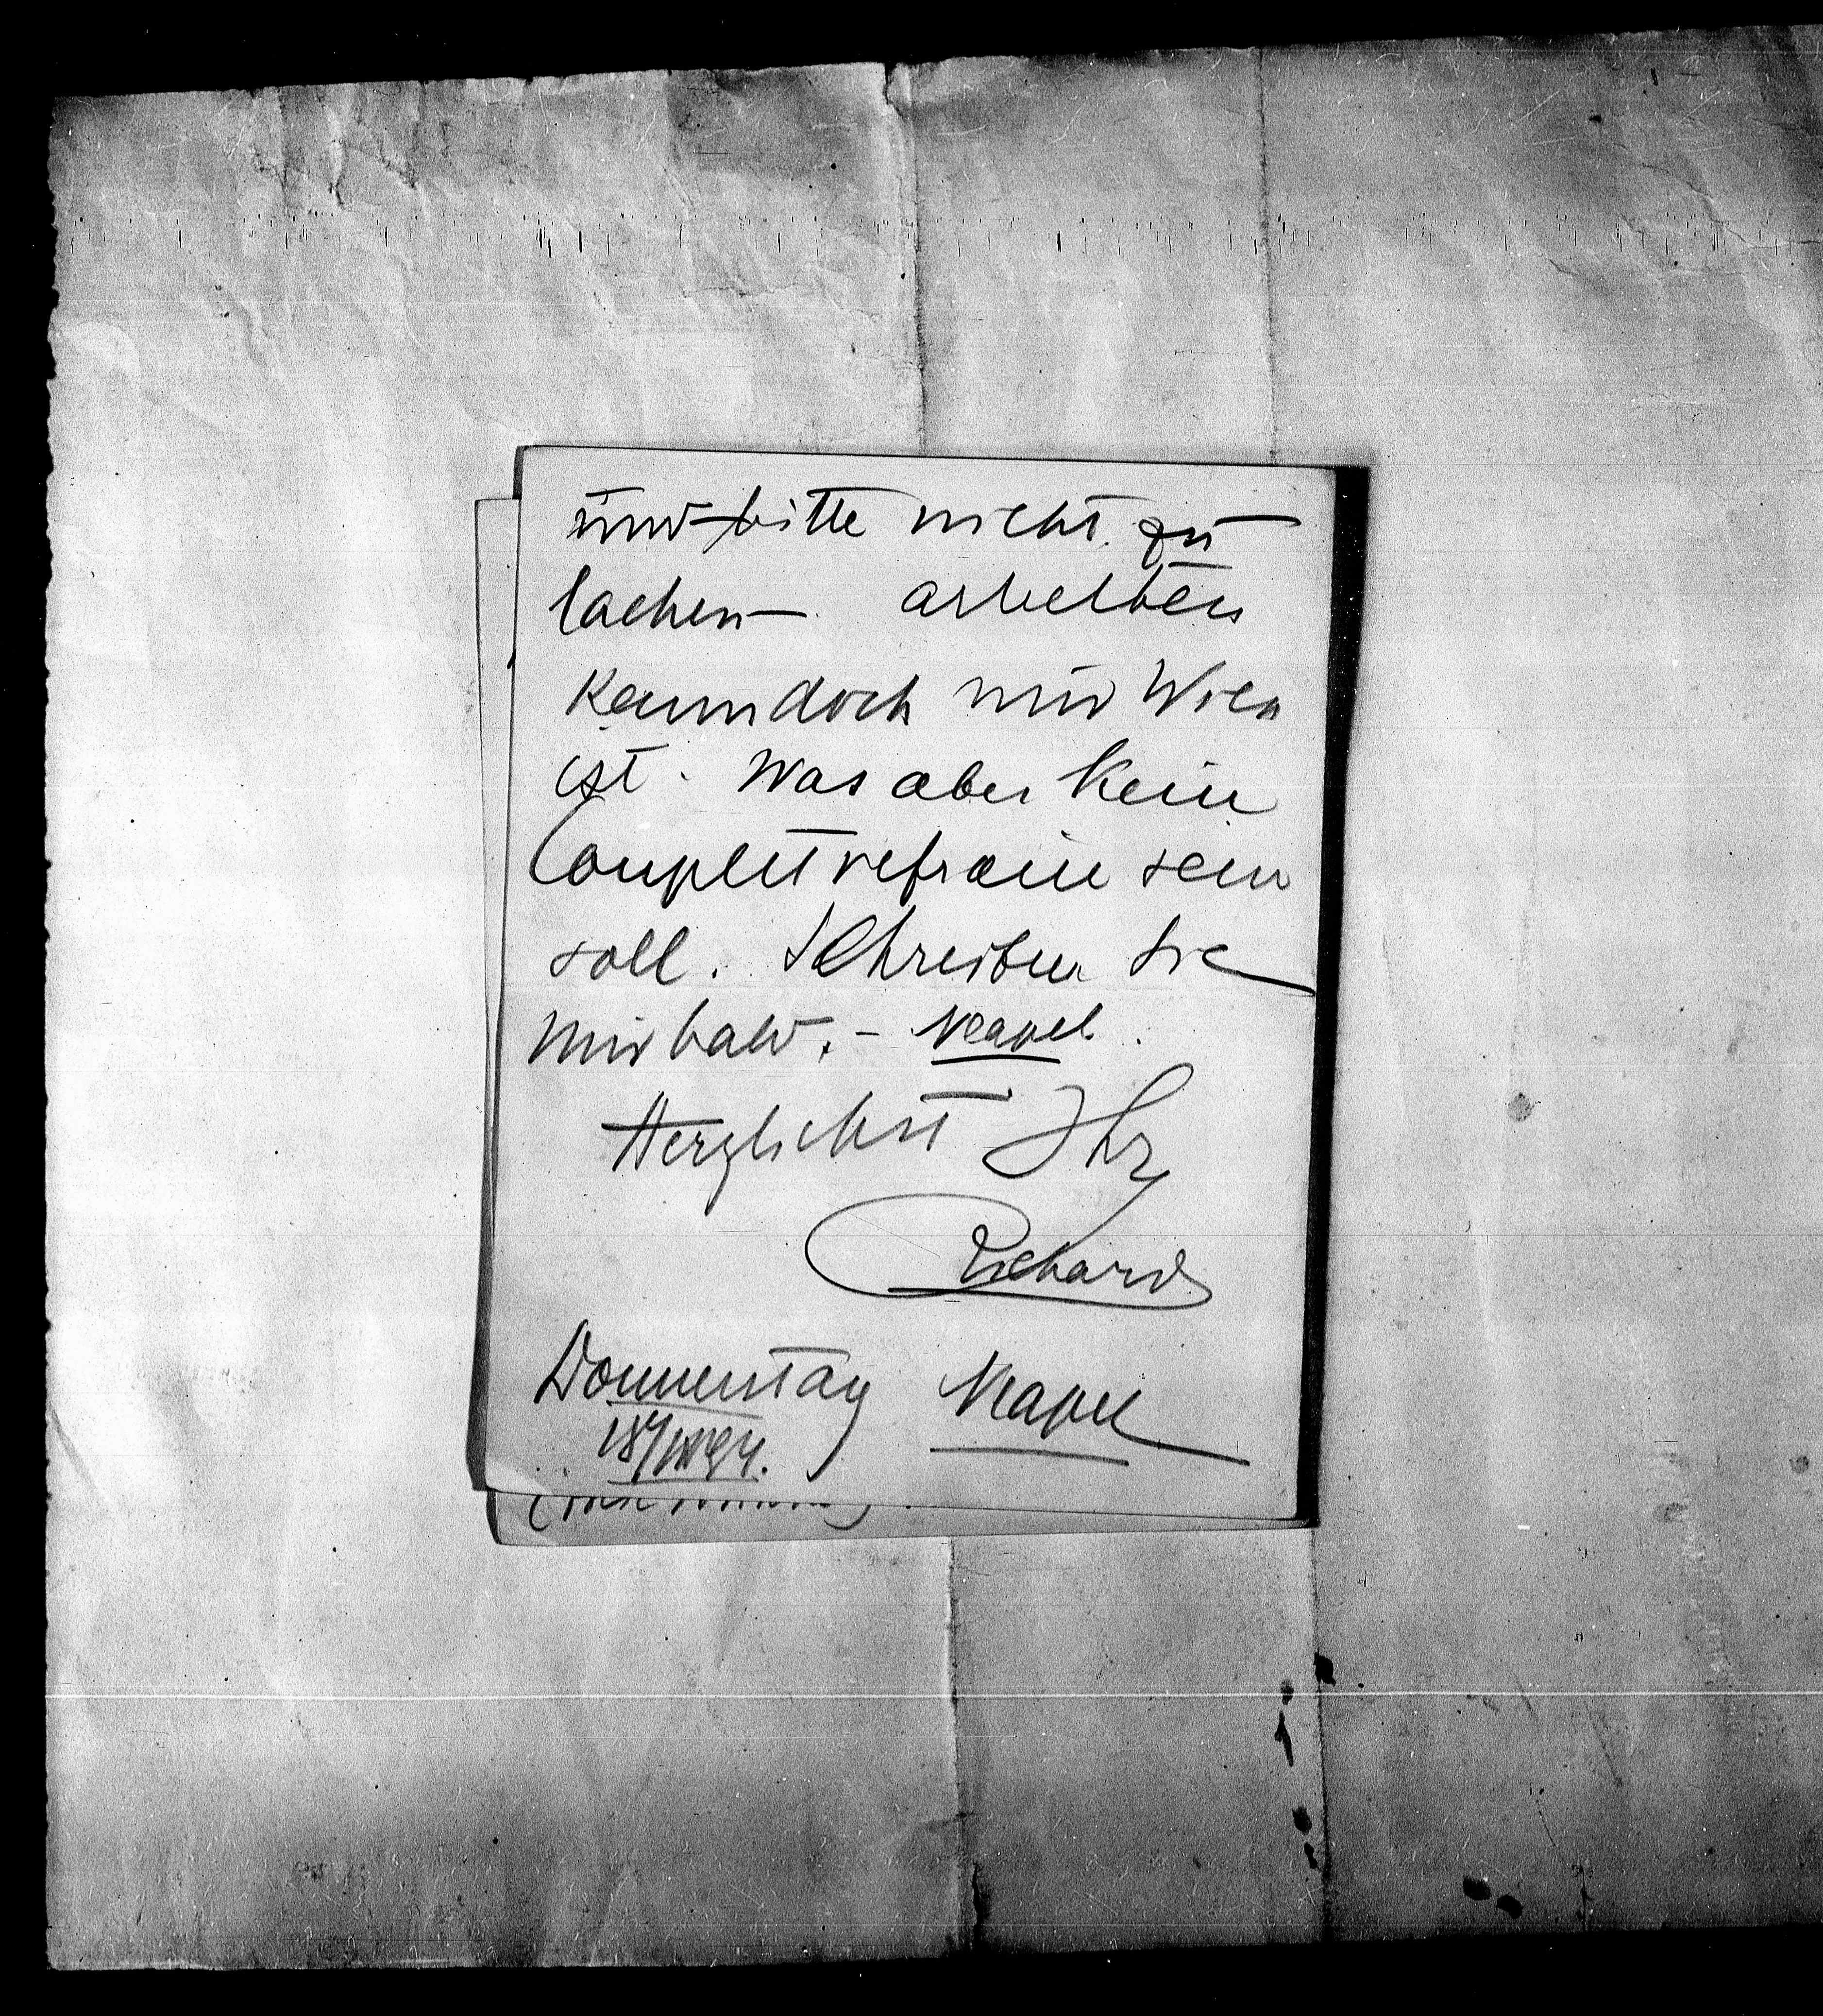 und bitte nicht zu
lachen – arbeiten
kann doch nur Wien
ist. Was aber kein
Coupletrefrain sein
soll. Schreiben Sie
mir bald. – Neapel.
Herzlichst Ihr
Richard
Donnerstag Neapel
18/ 94.